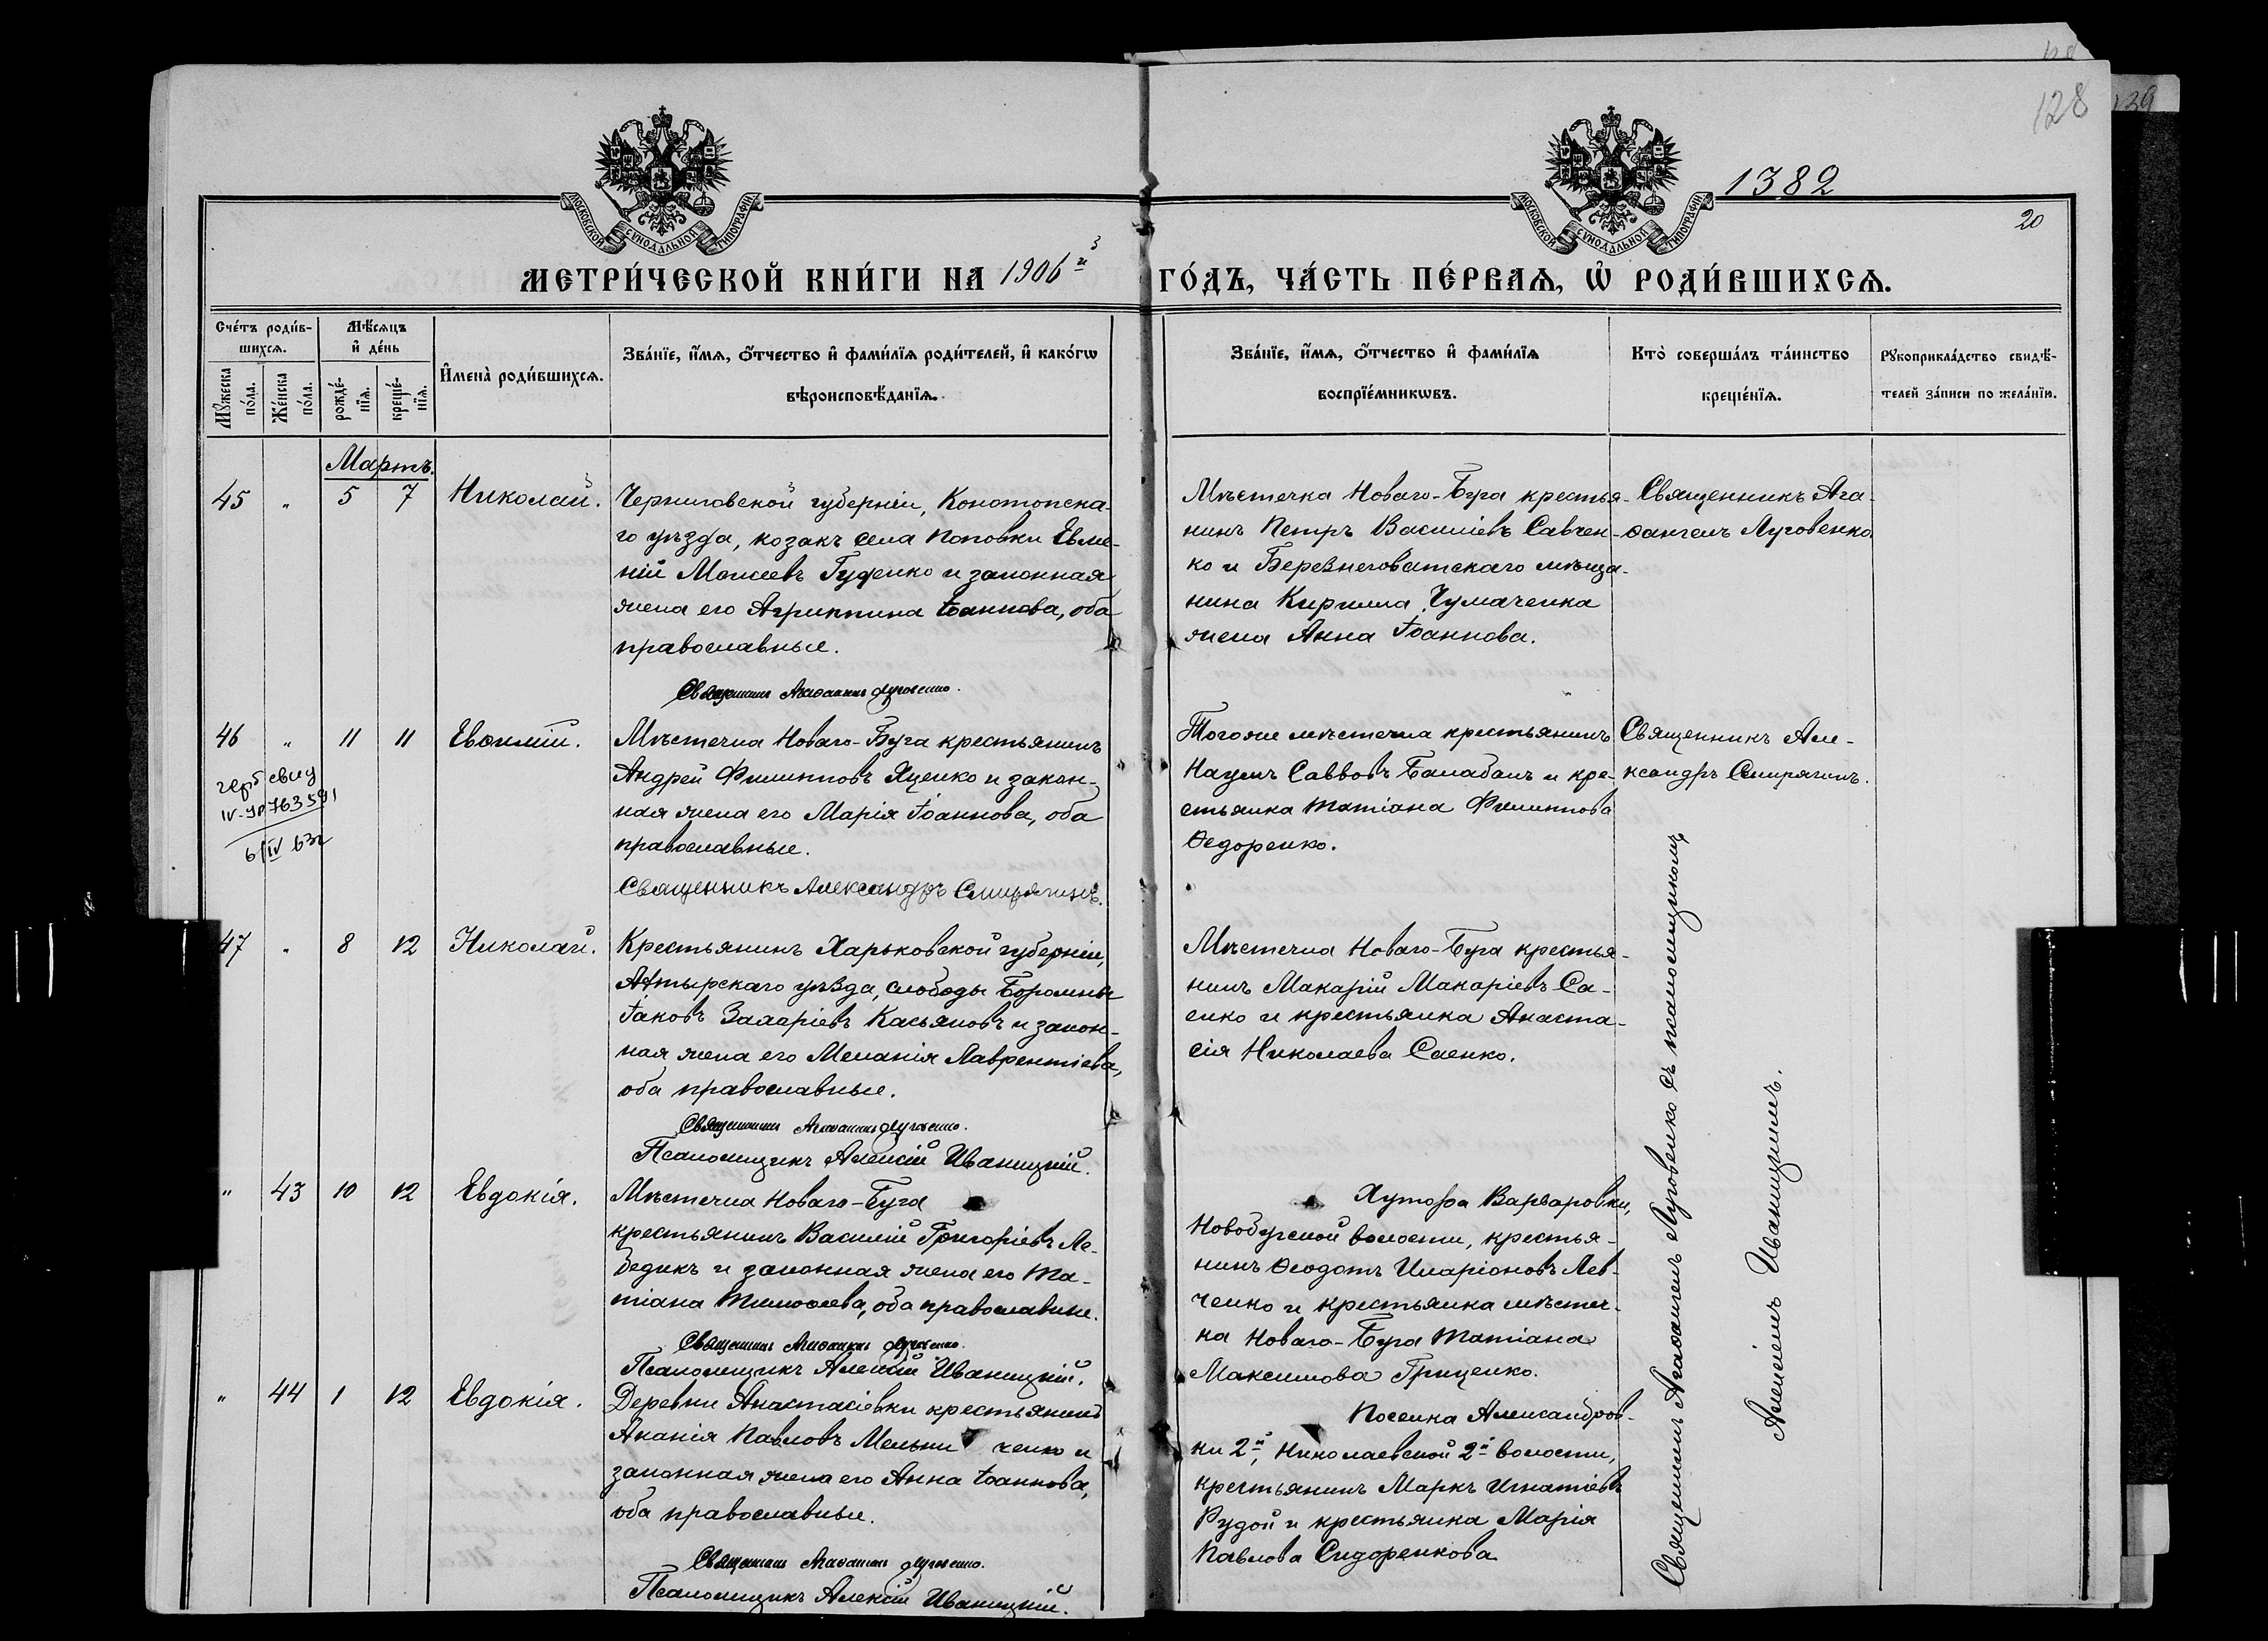 128
139
1382
20
МОСКОВСКОЙ СѴНОДАЛЬНОЙ ТИПОГРАФІИ
МОСКОВСКОЙ СѴНОДАЛЬНОЙ ТИПОГРАФІИ
МЕТРИ́ЧЕСКОЙ КНИ́ГИ НА 1906й ГО́ДЪ, ЧА́СТЬ ПЕ́РВАѦ, Ѽ РОДИ́ВШИХСѦ.
Сче́тъ роди́в-
шихсѧ.
Мѣ́сѧцъ
и҆ де́нь
Мꙋ́жеска по́ла.
Же́нска по́ла.
рожде́-
нїѧ.
креще́-
нїѧ.
И҆мена̀ роди́вшихсѧ.
Зва́нїе, и҆́мѧ, ѻ҆́тчество и҆ фами́лїѧ роди́телей, и҆ како́гѡ
вѣроисповѣ́данїѧ.
Зва́нїе, и҆́мѧ, ѻ҆́тчество и҆ фами́лїѧ
воспрїе́мникѡвъ.
Кто̀ соверша́лъ та́инство
креще́нїѧ.
Рꙋкоприкла́дство свидѣ́-
телей за́писи по жела́нїю.
Мартъ.
45 " 5 7 Николай.
Черниговской губерніи, Конотопска-
го уѣзда, козакъ села Поповки Евме-
ній Моисеевъ Гуденко и законная
жена его Агриппина Іоаннова, оба
православные.
Священникъ Агаѳангелъ Луговенко.
Мѣстечка Новаго-Буга крестья-
нинъ Петръ Василіевъ Савчен-
ко и Березнеговатскаго мѣща-
нина Кирилла Чумаченка
жена Анна Іоаннова.
Священникъ Ага-
ѳангелъ Луговенко
46 " 11 11 Евѳимій.
герб свид
IV-ЯР 763591
6/IV 63г
Мѣстечка Новаго-Буга крестьянинъ
Андрей Филипповъ Яценко и закон-
ная жена его Марія Іоаннова, оба
православные.
Священникъ Александръ Смирягинъ.
Тогоже мѣстечка крестьянинъ
Наумъ Саввовъ Балабанъ и кре-
стьянка Татіана Филиппова
Ѳедоренко.
Священникъ Але-
ксандръ Смирягинъ.
47 " 8 12 Николай.
Крестьянинъ Харьковской губерніи,
Ахтырскаго уѣзда, слободы Боромли
Іаковъ Захаріевъ Касьяновъ и закон-
ная жена его Меланія Лаврентіева,
оба православные.
Священникъ Агаѳангелъ Луговенко.
Псаломщикъ Алексій Иваницкій.
Мѣстечка Новаго-Буга крестья-
нинъ Макарій Макаріевъ Са-
енко и крестьянка Анаста-
сія Николаева Саенко.
" 43 10 12 Евдокія.
Мѣстечка Новаго-Буга
крестьянинъ Василій Григоріевъ Ле-
бедикъ и законная жена его Та-
тіана Тимоѳеева, оба православные.
Священникъ Агаѳангелъ Луговенко.
Псаломщикъ Алексій Иваницкій.
Хутора Варваровки,
Новобугской волости, крестья-
нинъ Ѳеодотъ Иларіоновъ Лев-
ченко и крестьянка мѣстеч-
ка Новаго-Буга Татіана
Максимова Гриценко.
" 44 1 12 Евдокія.
Деревни Анастасіевки крестьянинъ
Ананія Павловъ Мельни ченко и
законная жена его Анна Іоаннова,
оба православные.
Священникъ Агаѳангелъ Луговенко.
Псаломщикъ Алексій Иваницкій.
Поселка Александров-
ки 2й, Николаевской 2й волости,
крестьянинъ Маркъ Игнатіевъ
Рудой и крестьянка Марія
Павлова Сидоренкова
Священникъ Агаѳангелъ Луговенко съ псаломщикомъ
Алексіемъ Иваницкимъ.